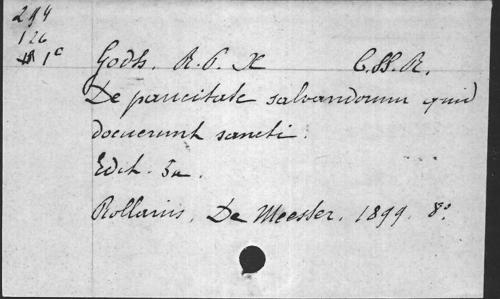 294
126
1c
Godts. R. P. X C.SS.R.
De paucitate salvandorum quid
docuerunt sancti.
Edit. 3a.
Rollarii, De Meester. 1899. 8o.